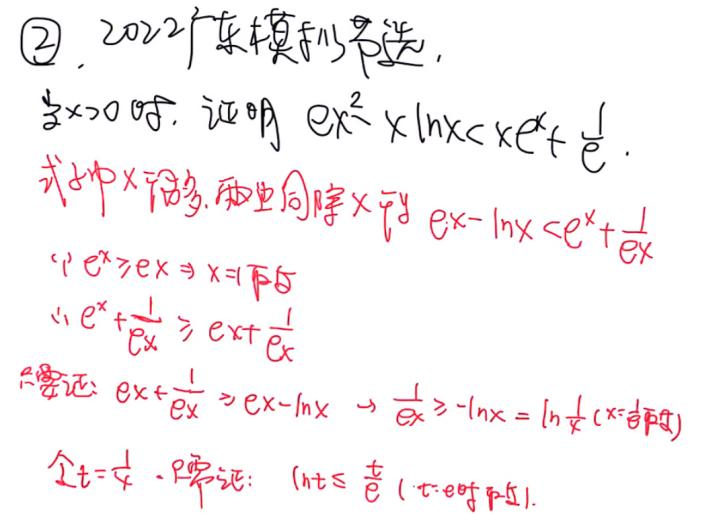 ②. 2022广东模拟节选.
当x>0时. 证明 ex²-xlnx<xeˣ+1/e.
式子中x偏多.两边同除x可得 ex-lnx<eˣ+1/ex
∵ eˣ≥ex → x=1取与
∴ eˣ+1/ex ≥ ex+1/ex
只需证: ex+1/ex ≥ ex-lnx → 1/ex ≥ -lnx = ln1/x (x=1/e取与)
令t=1/x. 只需证: lnt≤t/e (t=e时取与).